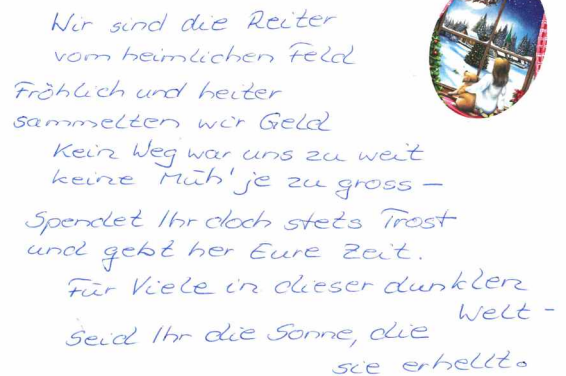 Wir sind die Reiter
vom heimlichen Feld
Fröhlich und heiter
sammelten wir Geld
Kein Weg war uns zu weit
keine Müh' je zu gross –
Spendet Ihr doch stets Trost
und gebt her Eure Zeit.
Für Viele in dieser dunklen
Welt –
Seid Ihr die Sonne, die
sie erhellt.